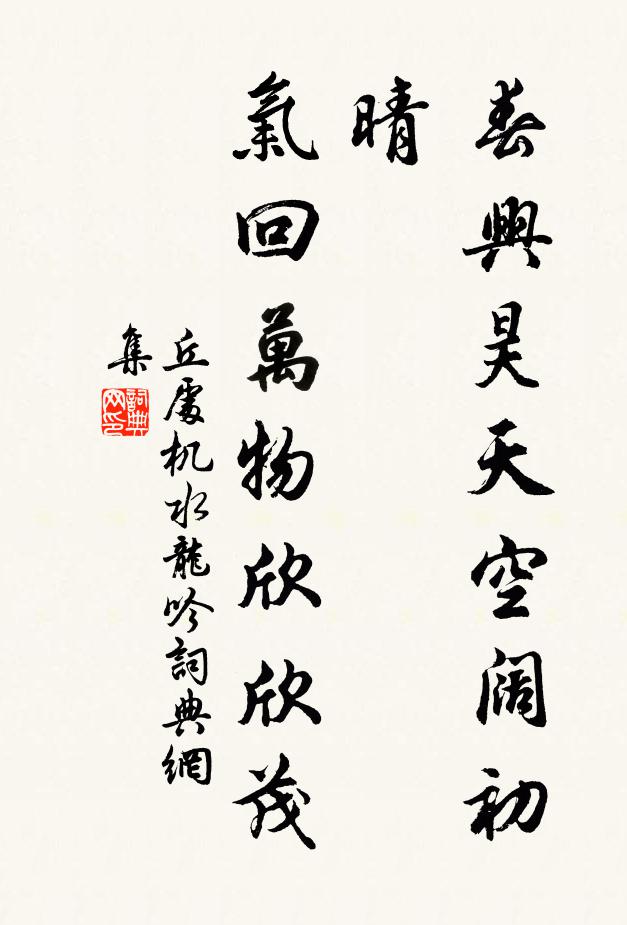 春興昊天空闊初
晴
氣回萬物欣欣茂
丘處机水龍吟詞典網
集
詞典
网印